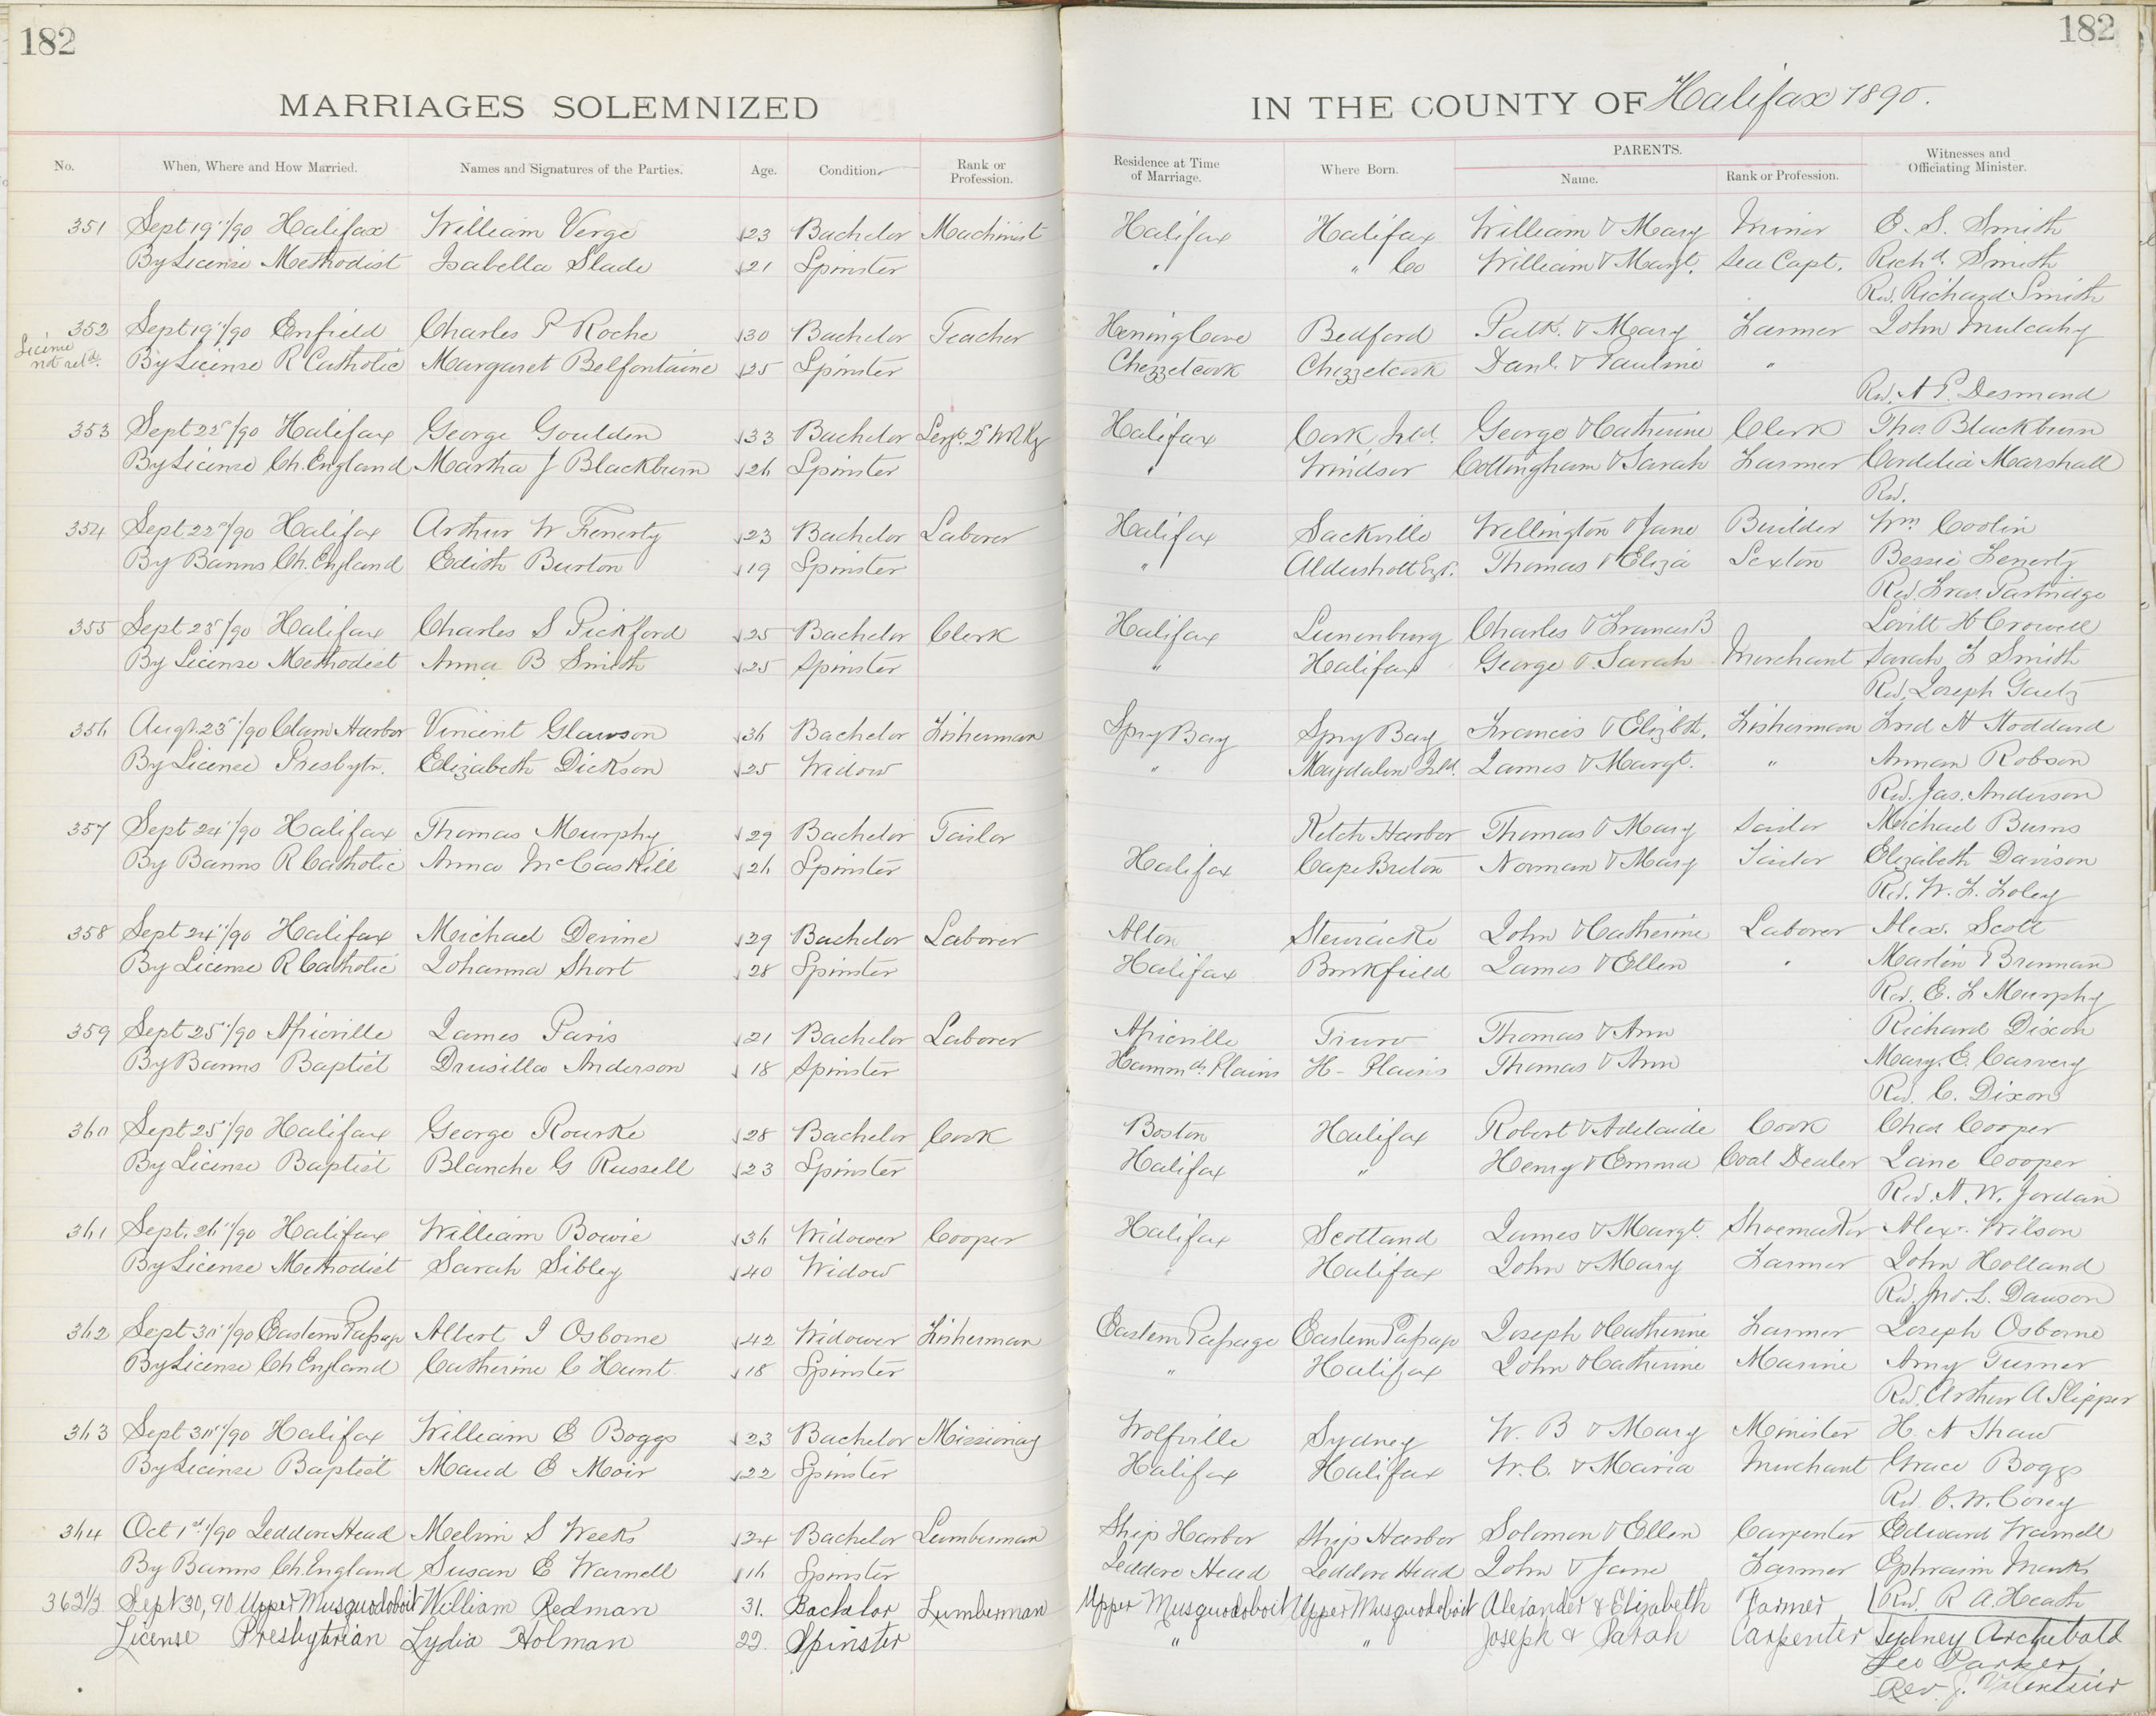 182
182
MARRIAGES SOLEMNIZED IN THE COUNTY OF Halifax 1890.
No. When, Where and How Married. Names and Signatures of the Parties. Age. Condition. Rank or Profession. Residence at Time of Marriage. Where Born. PARENTS. Name. Rank or Profession. Witnesses and Officiating Minister.
351 Sept 19"/90 Halifax William Verge 23 Bachelor Machinist Halifax Halifax William & Mary Miner E. S. Smith
By License Methodist Isabella Slade 21 Spinster " " Co William & Margt. Sea Capt. Richd. Smith
Rev. Richard Smith
352 Sept 19"/90 Enfield Charles P Roche 30 Bachelor Teacher Herring Cove Bedford Patk. & Mary Farmer John Mulcahy
License not retd. By License R Catholic Margaret Belfontaine 25 Spinster Chezzetcook Chezzetcook Danl. & Pauline "
Rev. A P. Desmond
353 Sept 22"/90 Halifax George Goulden 33 Bachelor Sergt. Halifax Cork Ireld. George & Catherine Clerk Thos. Blackburn
By License Ch. England Martha J Blackburn 26 Spinster " Windsor Cottingham & Sarah Farmer Cordelia Marshall
Rev.
354 Sept 22"/90 Halifax Arthur W Fenerty 23 Bachelor Laborer Halifax Sackville Wellington & Jane Builder Wm Coolin
By Banns Ch. England Edith Burton 19 Spinster " Aldershott Thomas & Eliza Sexton Bessie Fenerty
Rev. Fras. Partridge
355 Sept 23"/90 Halifax Charles S Pickford 25 Bachelor Clerk Halifax Lunenburg Charles & Frances B Levitt H Crowell
By License Methodist Anna B Smith 25 Spinster " Halifax George & Sarah Merchant Sarah F Smith
Rev. Joseph Gaetz
356 Augt. 23"/90 Clam Harbor Vincent Glawson 36 Bachelor Fisherman Spry Bay Spry Bay Francis & Elizbth. Fisherman Fred A Stoddard
By License Presbytr. Elizabeth Dickson 25 Widow " Magdalen Isld. James & Margt. " Annan Robson
Rev. Jas. Anderson
357 Sept 24"/90 Halifax Thomas Murphy 29 Bachelor Tailor Ketch Harbor Thomas & Mary Sailor Michael Burns
By Banns R Catholic Anna McCaskill 26 Spinster Halifax Cape Breton Norman & Mary Tailor Elizabeth Davison
Rev. W. F. Foley
358 Sept 24"/90 Halifax Michael Devine 29 Bachelor Laborer Alton Stewiacke John & Catherine Laborer Alex. Scott
By License R Catholic Johanna Short 28 Spinster Halifax Brookfield James & Ellen " Martin Brennan
Rev. E. F Murphy
359 Sept 25"/90 Africville James Paris 21 Bachelor Laborer Africville Truro Thomas & Ann Richard Dixon
By Banns Baptist Drusilla Anderson 18 Spinster Hammds. Plains H- Plains Thomas & Ann Mary. E. Carvery
Rev. C. Dixon
360 Sept 25"/90 Halifax George Rourke 28 Bachelor Cook Boston Halifax Robert & Adelaide Cook Chas Cooper
By License Baptist Blanche G Russell 23 Spinster Halifax " Henry & Emma Coal Dealer Jane Cooper
Rev. A. W. Jordain
361 Sept. 26"/90 Halifax William Bowie 36 Widower Cooper Halifax Scotland James & Margt. Shoemaker Alex. Wilson
By License Methodist Sarah Sibley 40 Widow " Halifax John & Mary Farmer John Holland
Rev. Jno. L. Dawson
362 Sept 30"/90 Eastern Passage Albert J Osborne 42 Widower Fisherman Eastern Passage Eastern Passage Joseph & Catherine Farmer Joseph Osborne
By License Ch England Catherine C Hunt 18 Spinster " Halifax John & Catherine Marine Amy Turner
Rev. Arthur A Slipper
363 Sept 30"/90 Halifax William E Boggs 23 Bachelor Missionary Wolfville Sydney W. B & Mary Minister H. A Shaw
By License Baptist Maud E Moir 22 Spinster Halifax Halifax W. C. & Maria Merchant Grace Boggs
Rev. C. W. Corey
364 Oct 1st"/90 Jeddore Head Melvin S Weeks 24 Bachelor Lumberman Ship Harbor Ship Harbor Solomon & Ellen Carpenter Edward Warnell
By Banns Ch. England Susan E Warnell 16 Spinster Jeddore Head Jeddore Head John & Jane Farmer Ephraim Monk
Rev. R A. Heath
362½ Sept 30, 90 Upper Musquodoboit William Redman 31. Bachelor Lumberman Upper Musquodoboit Upper Musquodoboit Alexander & Elizabeth Farmer
License Presbytrian Lydia Holman 22. Spinster " " Joseph & Sarah Carpenter Sydney Archibald
Geo Parker
Rev. J. Valentine